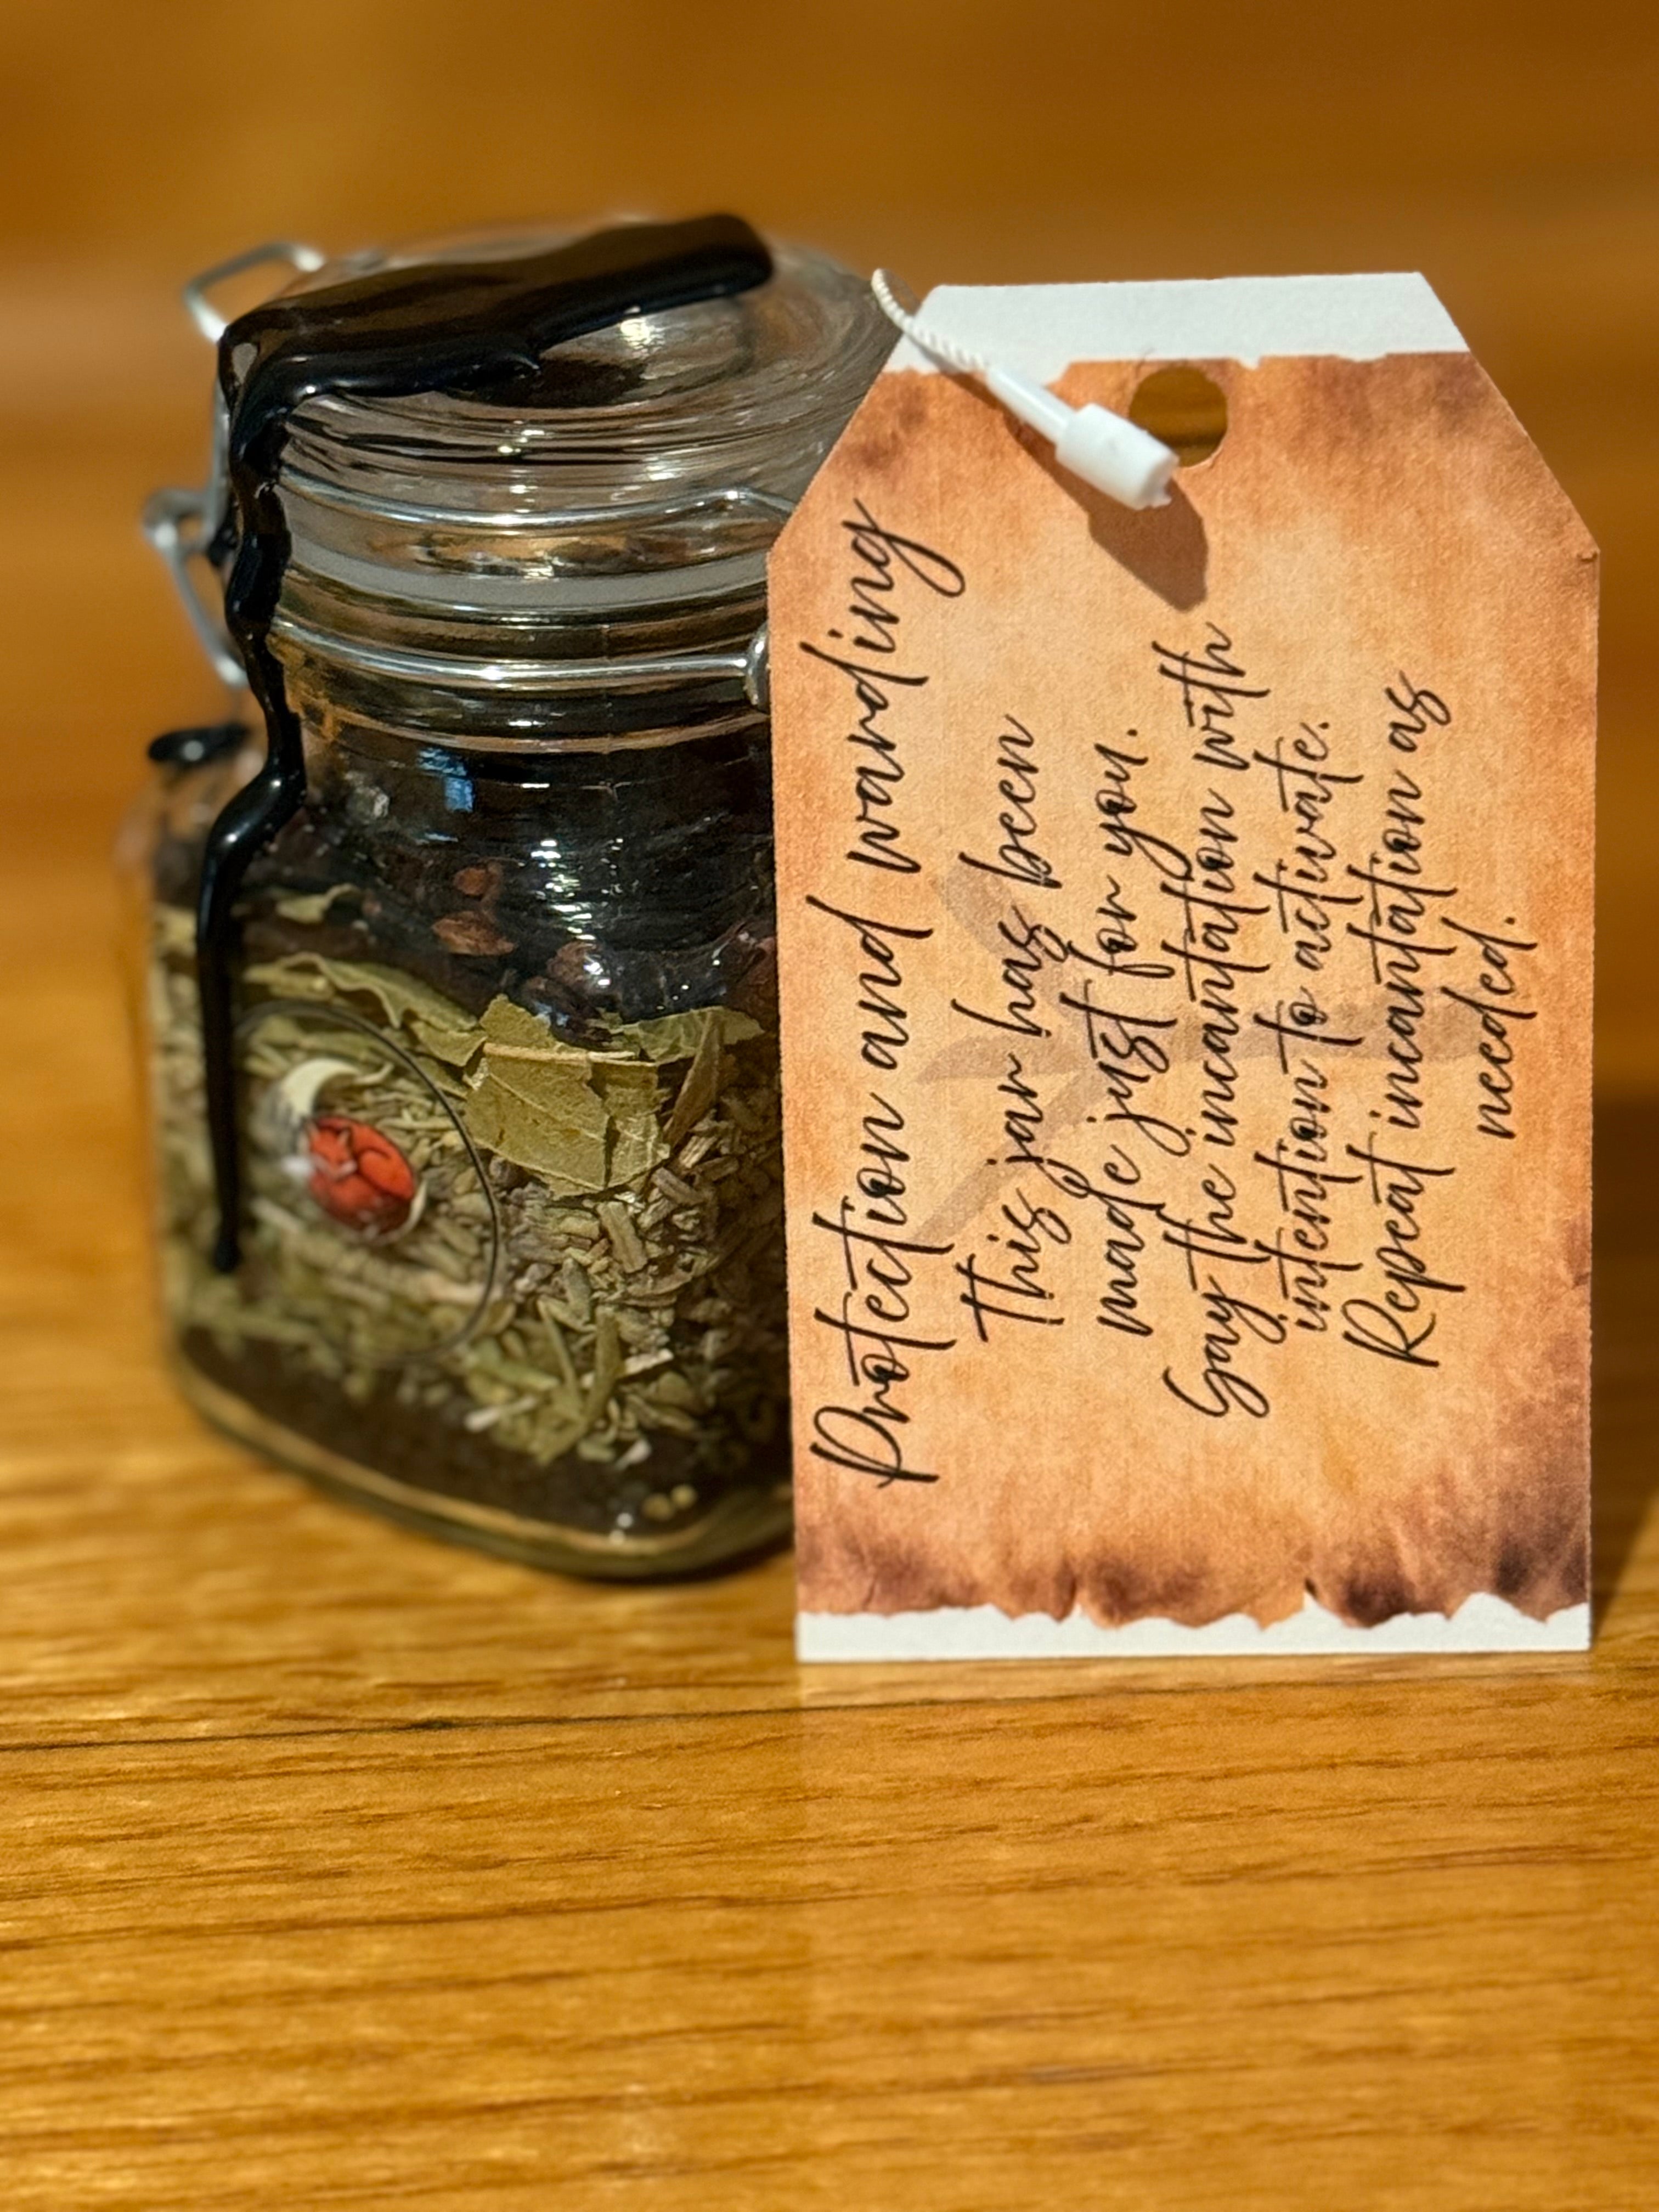 Protection and warding
This jar has been
made just for you.
Say the incantation with
intention to activate.
Repeat incantation as
needed.